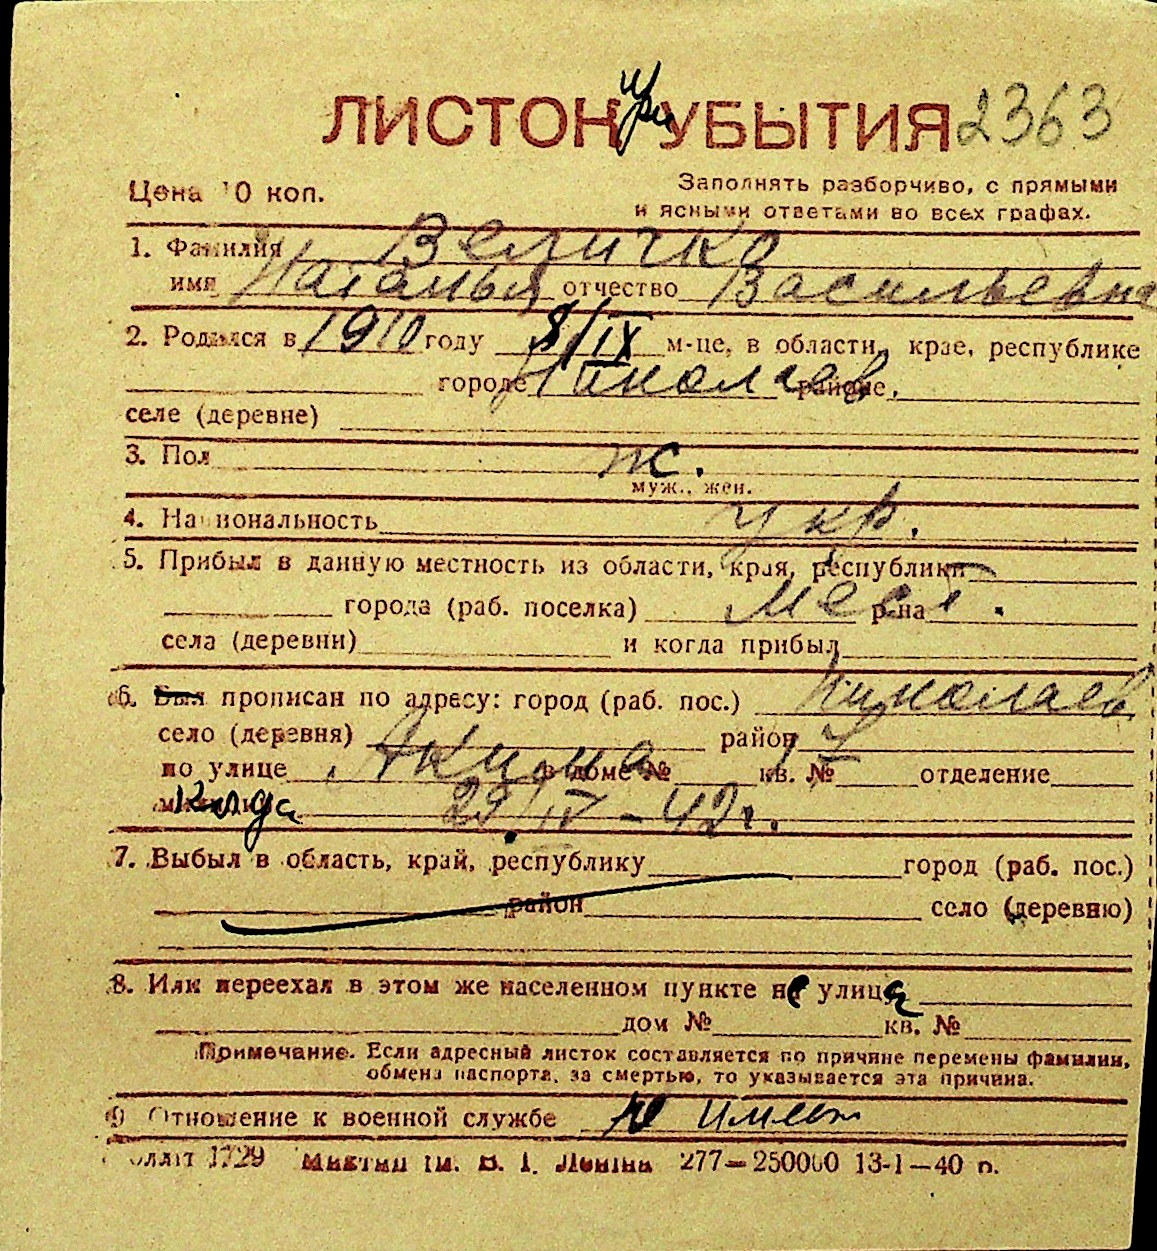 ЛИСТОК при УБЫТИЯ 2363
Цена 10 коп. Заполнять разборчиво, с прямыми
и ясными ответами во всех графах.
1. Фамилия Величко
имя Наталья отчество Васильевна
2. Родился в 1910 году 8/IX м-це, в области, крае, республике
городе Николаев районе,
селе (деревне)
3. Пол ж.
муж., жен.
4. Национальность укр.
5. Прибыл в данную местность из области, края, республики
города (раб. поселка) мест. р-на
села (деревни) и когда прибыл
6. Был прописан по адресу: город (раб. пос.) Николаев
село (деревня) район
по улице Акима в доме № 7 кв. № отделение
милиции когда 29/IV-42г.
7. Выбыл в область, край, республику город (раб. пос.)
район село (деревню)
8. Или переехал в этом же населенном пункте не улица
дом № кв. №
Примечание. Если адресный листок составляется по причине перемены фамилии,
обмена паспорта, за смертью, то указывается эта причина.
9 Отношение к военной службе не имеет
1729 им. В. І. Леніна 277—250000 13-1—40 р.